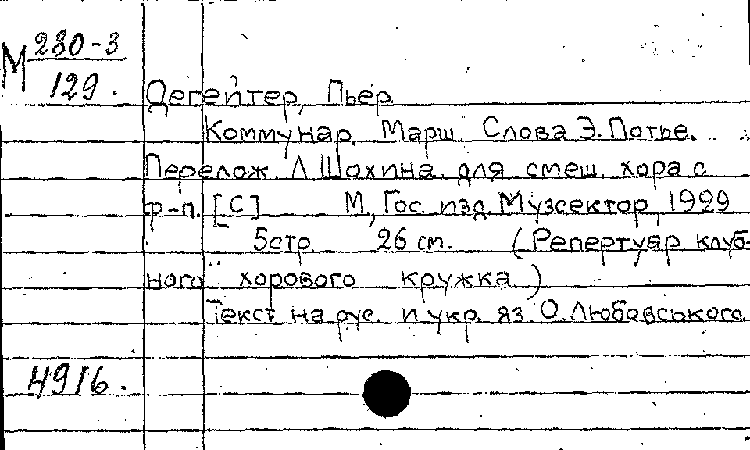 М 280-3
129.
Дегейтер, Пьер
Коммунар. Марш. Слова Э. Потье.
Перелож. Л. Шохина для смеш. хора с
ф-п. [С] М., Гос. изд. Музсектор, 1929
5стр. 26 см. (Репертуар клуб-
ного хорового кружка)
Текст на рус. и укр. яз. О. Любовського.
4916.